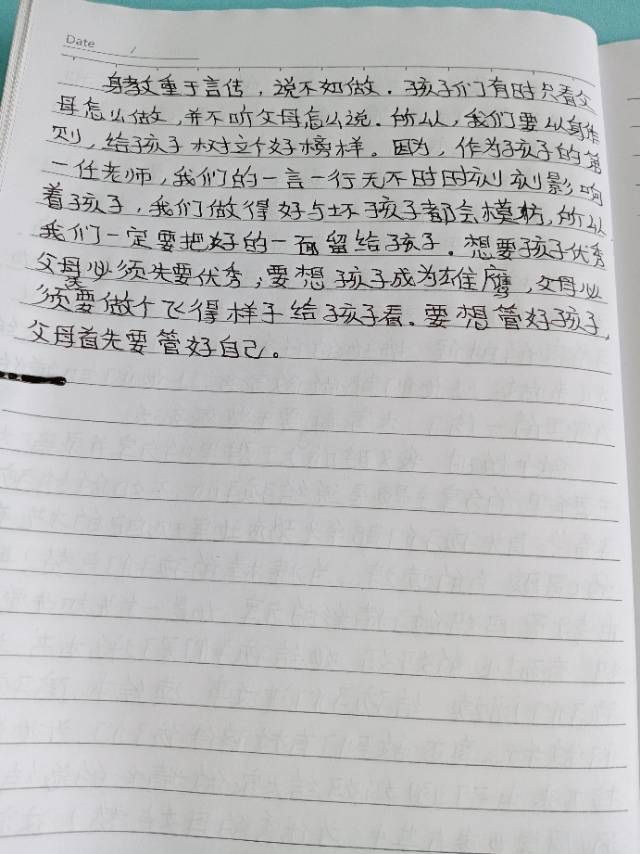 Date /
身教重于言传，说不如做．孩子们有时只看父
母怎么做，并不听父母怎么说．所以，我们要以身作
则，给孩子树立个好榜样。因为，作为孩子的第
一任老师，我们的一言一行无不时时刻刻影响
着孩子，我们做得好与坏孩子都会模仿，所以
我们一定要把好的一面留给孩子．想要孩子优秀
父母必须先要优秀；要想孩子成为雄鹰，父母必
须要做个飞得样子给孩子看．要想管好孩子，
父母首先要管好自己。